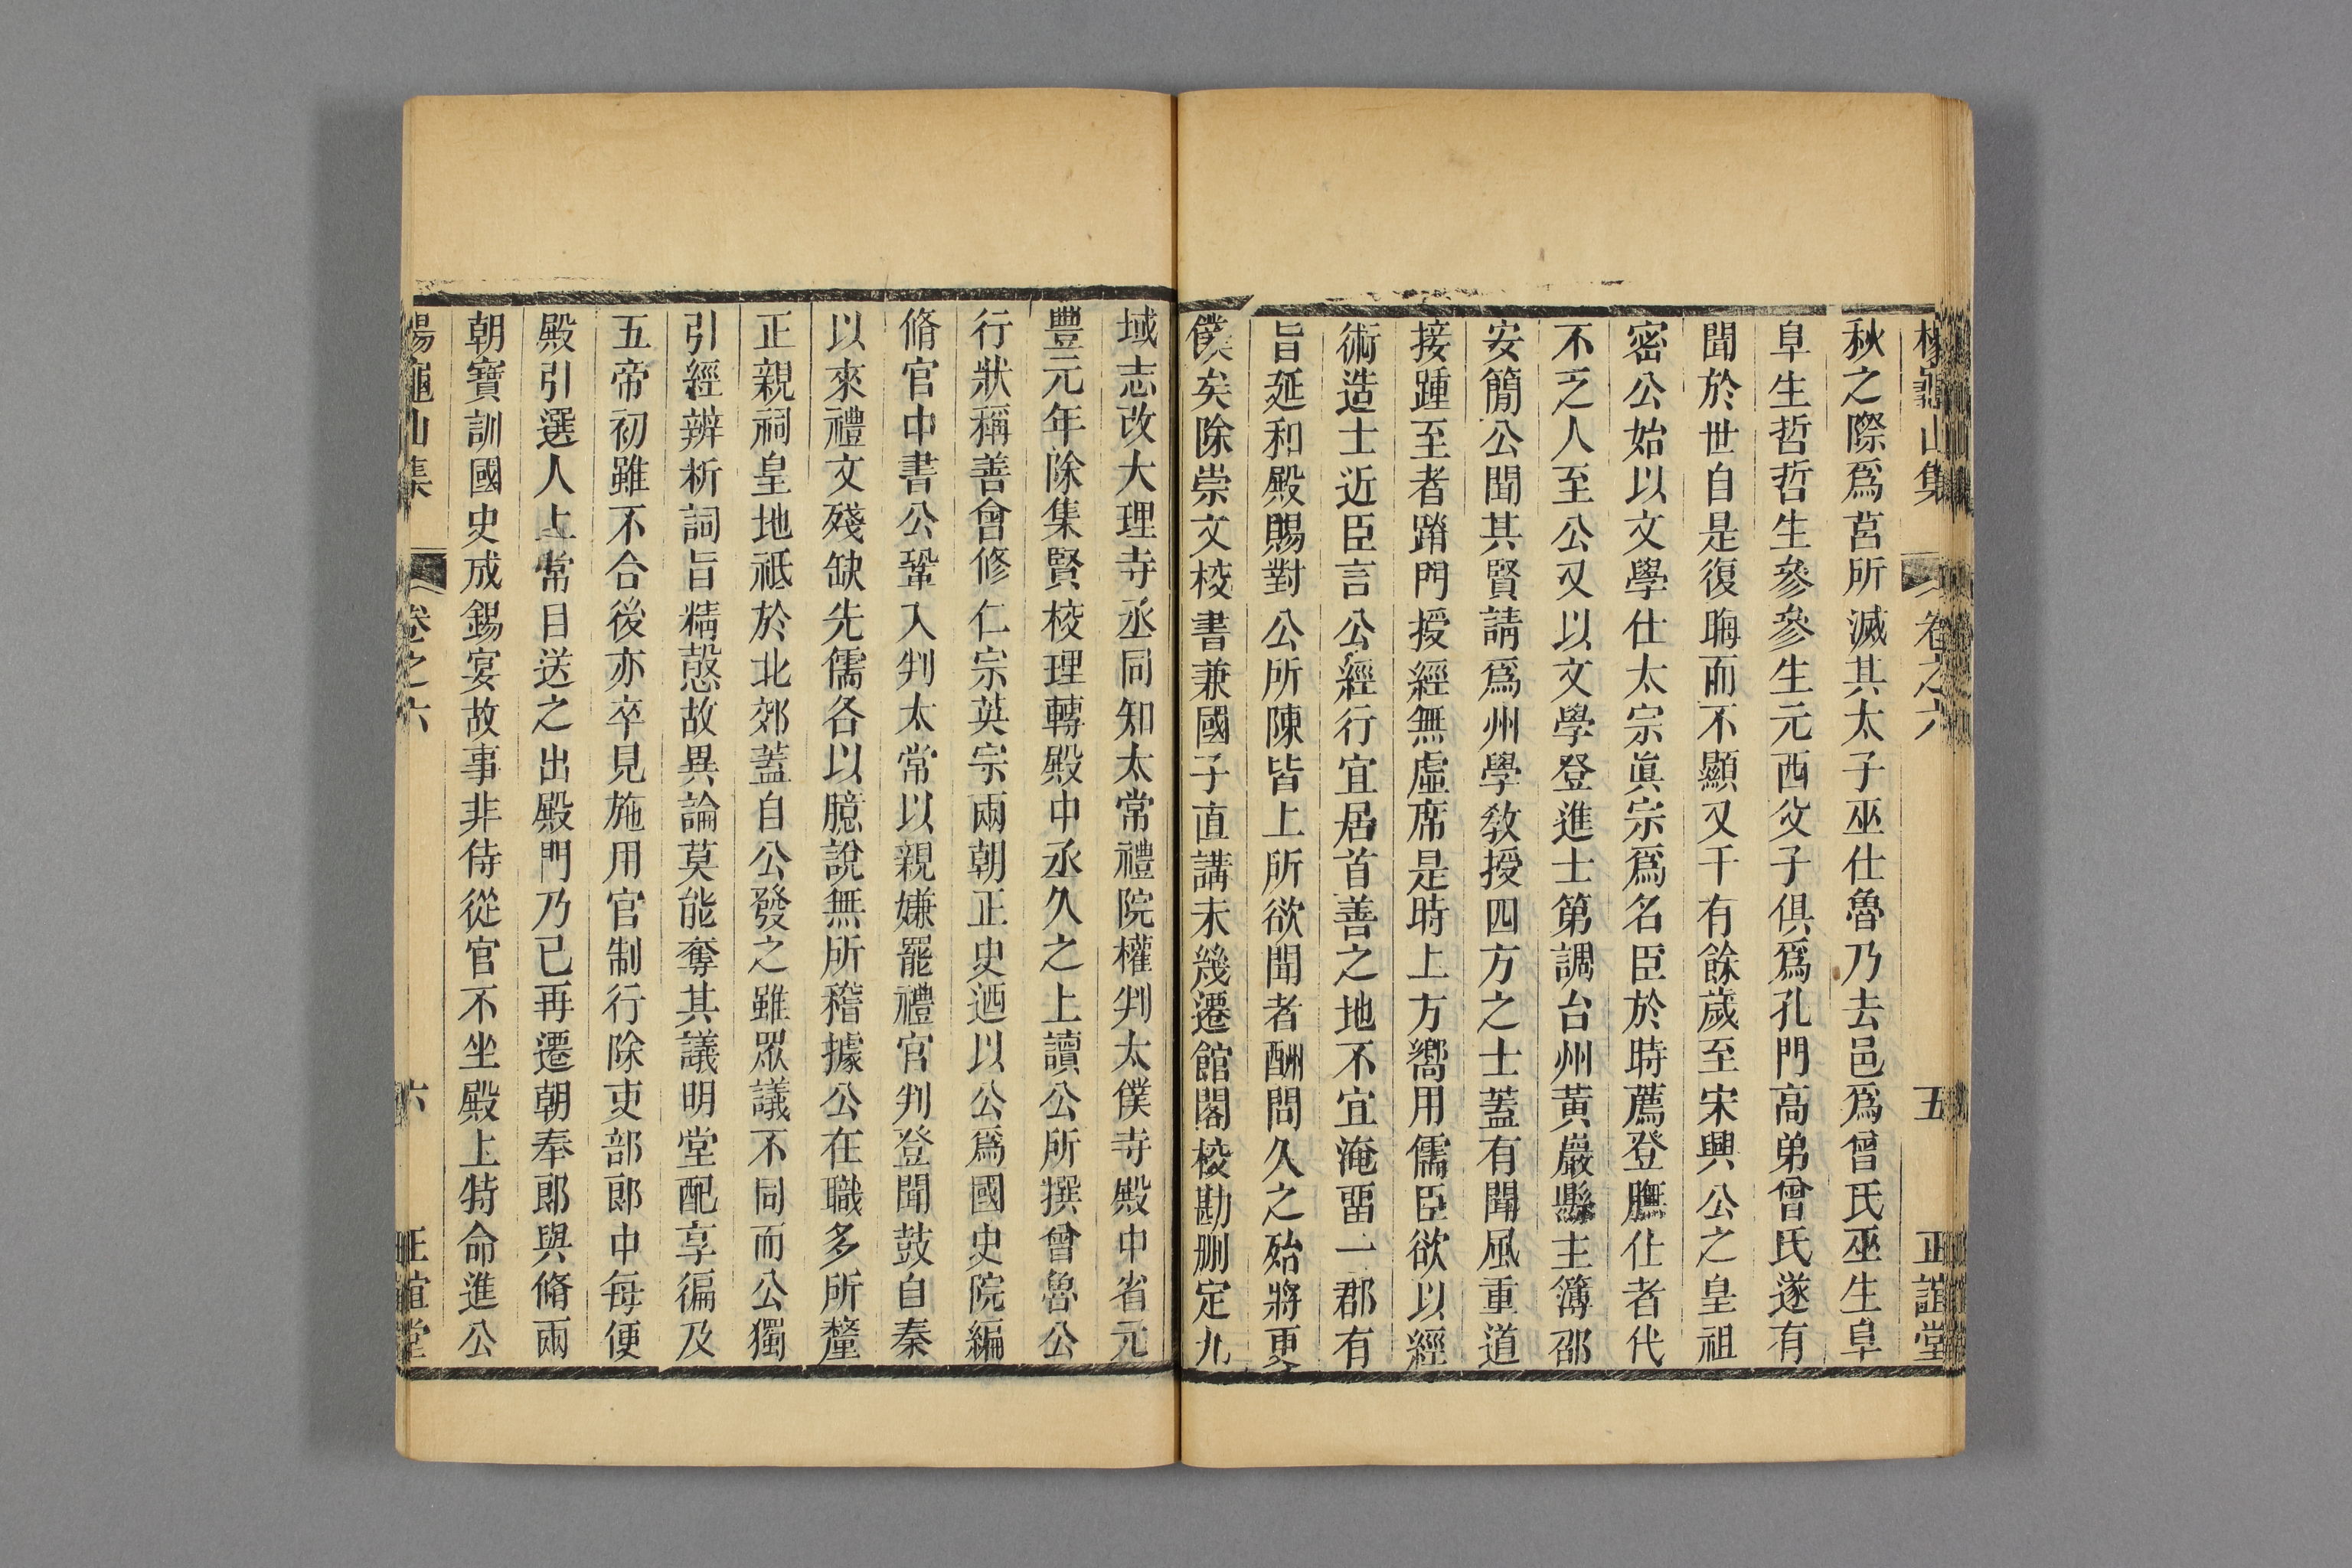 楊龜山集 卷之六 五 正誼堂
秋之際爲莒所滅其太子巫仕魯乃去邑爲曾氏巫生阜
阜生哲哲生參參生元西父子俱爲孔門高弟曾氏遂有
聞於世自是復晦而不顯又千有餘歲至宋興公之皇祖
密公始以文學仕太宗眞宗爲名臣於時薦登膴仕者代
不乏人至公又以文學登進士第調台州黃巖縣主簿邵
安簡公聞其賢請爲州學敎授四方之士蓋有聞風重道
接踵至者踰門授經無虛席是時上方嚮用儒臣欲以經
術造士近臣言公經行宜居首善之地不宜淹畱一郡有
旨延和殿賜對公所陳皆上所欲聞者酬問久之殆將更
僕矣除崇文校書兼國子直講未幾遷館閣校勘删定九
域志改大理寺丞同知太常禮院權判太僕寺殿中省元
豐元年除集賢校理轉殿中丞久之上讀公所撰曾魯公
行狀稱善會修仁宗英宗兩朝正史迺以公爲國史院編
脩官中書公鞏入判太常以親嫌罷禮官判登聞鼓自秦
以來禮文殘缺先儒各以臆說無所稽據公在職多所釐
正親祠皇地祗於北郊蓋自公發之雖眾議不同而公獨
引經辨析詞旨精慤故異論莫能奪其議明堂配享徧及
五帝初雖不合後亦卒見施用官制行除吏部郎中每便
殿引選人上常目送之出殿門乃已再遷朝奉郎與脩兩
朝寶訓國史成錫宴故事非侍從官不坐殿上特命進公
楊龜山集 卷之六 六 正誼堂